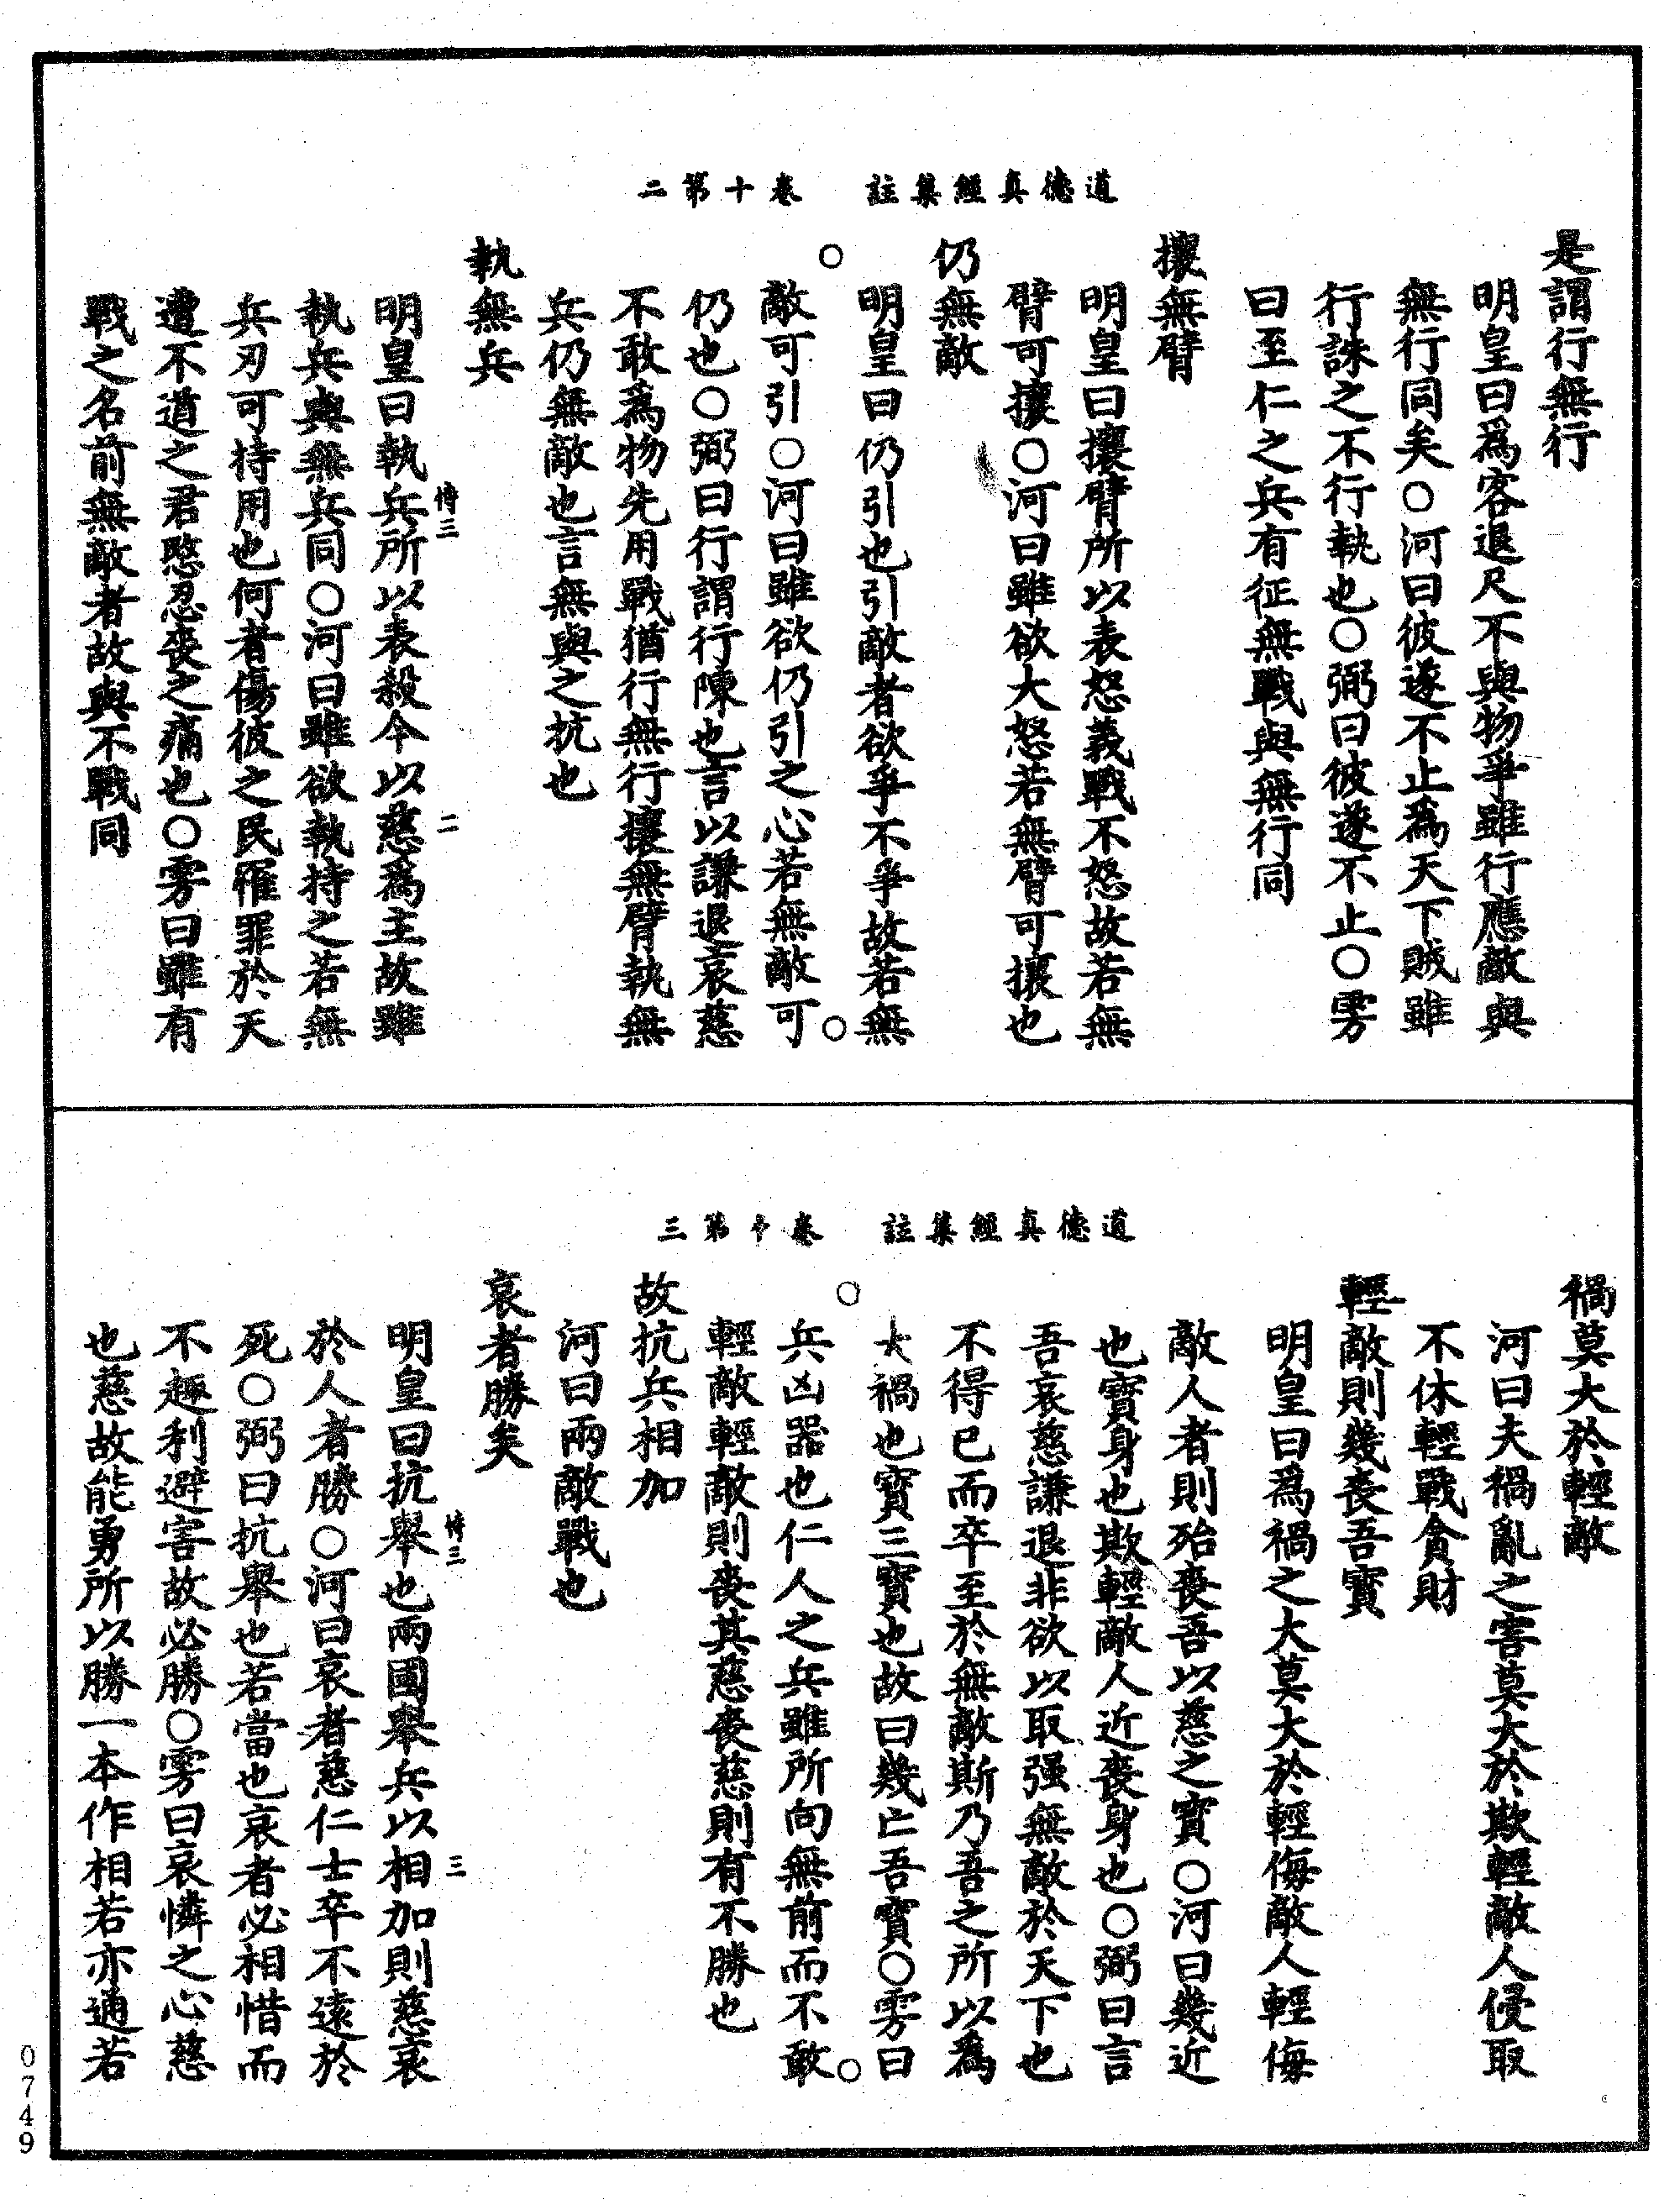 道德真經集註　卷十第二
是謂行無行
明皇曰爲客退尺不與物爭雖行應敵與
無行同矣○河曰彼遂不止爲天下賊雖
行誅之不行執也○弼曰彼遂不止○雱
曰至仁之兵有征無戰與無行同
攘無臂
明皇曰攘臂所以表怒義戰不怒故若無
臂可攘○河曰雖欲大怒若無臂可攘也
仍無敵
明皇曰仍引也引敵者欲爭不爭故若無
敵可引○河曰雖欲仍引之心若無敵可
仍也○弼曰行謂行陳也言以謙退哀慈
不敢爲物先用戰猶行無行攘無臂執無
兵仍無敵也言無與之抗也
執無兵
博三　二
明皇曰執兵所以表殺今以慈爲主故雖
執兵與無兵同○河曰雖欲執持之若無
兵刃可持用也何者傷彼之民罹罪於天
遭不道之君愍忍喪之痛也○雱曰雖有
戰之名前無敵者故與不戰同
道德真經集註　卷十第三
禍莫大於輕敵
河曰夫禍亂之害莫大於欺輕敵人侵取
不休輕戰貪財
輕敵則幾喪吾寶
明皇曰爲禍之大莫大於輕侮敵人輕侮
敵人者則殆喪吾以慈之寶○河曰幾近
也寶身也欺輕敵人近喪身也○弼曰言
吾哀慈謙退非欲以取强無敵於天下也
不得已而卒至於無敵斯乃吾之所以爲
大禍也寶三寶也故曰幾亡吾寶○雱曰
兵凶器也仁人之兵雖所向無前而不敢
輕敵輕敵則喪其慈喪慈則有不勝也
故抗兵相加
河曰兩敵戰也
哀者勝矣
博三　三
明皇曰抗舉也兩國舉兵以相加則慈哀
於人者勝○河曰哀者慈仁士卒不遠於
死○弼曰抗舉也若當也哀者必相惜而
不趣利避害故必勝○雱曰哀憐之心慈
也慈故能勇所以勝一本作相若亦通若
0749